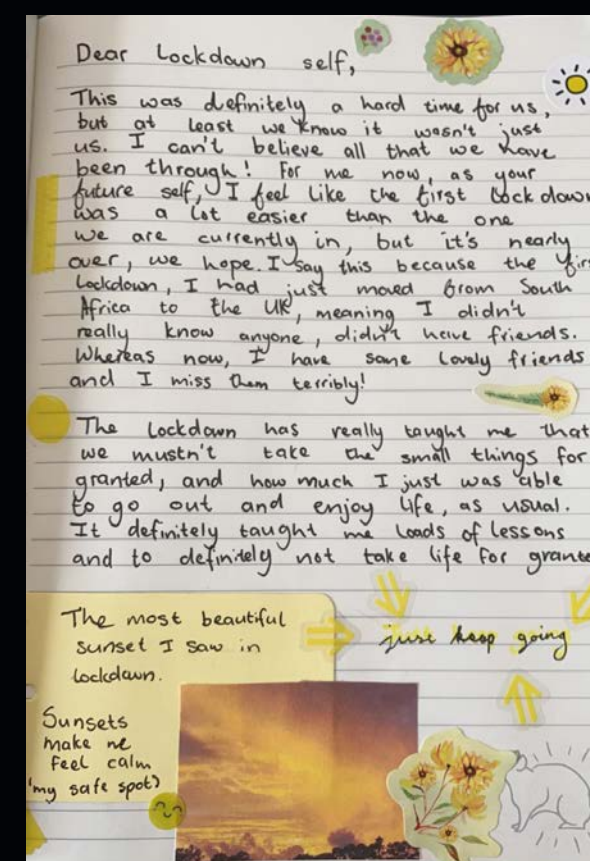 Dear Lockdown self,
This was definitely a hard time for us,
but at least we know it wasn't just
us. I can't believe all that we have
been through! For me now, as your
future self, I feel like the first lockdown
was a lot easier than the one
we are currently in, but it's nearly
over, we hope. I say this because the firs
Lockdown, I had just moved from South
Africa to the UK, meaning I didn't
really know anyone, didn't have friends.
Whereas now, I have some lovely friends
and I miss them terribly!
The Lockdown has really taught me that
we mustn't take the small things for
granted, and how much I just was able
to go out and enjoy life, as usual.
It definitely taught me loads of lessons
and to definitely not take life for grante
The most beautiful
sunset I saw in
lockdown.
just keep going
Sunsets
make me
feel calm
'my safe spot)